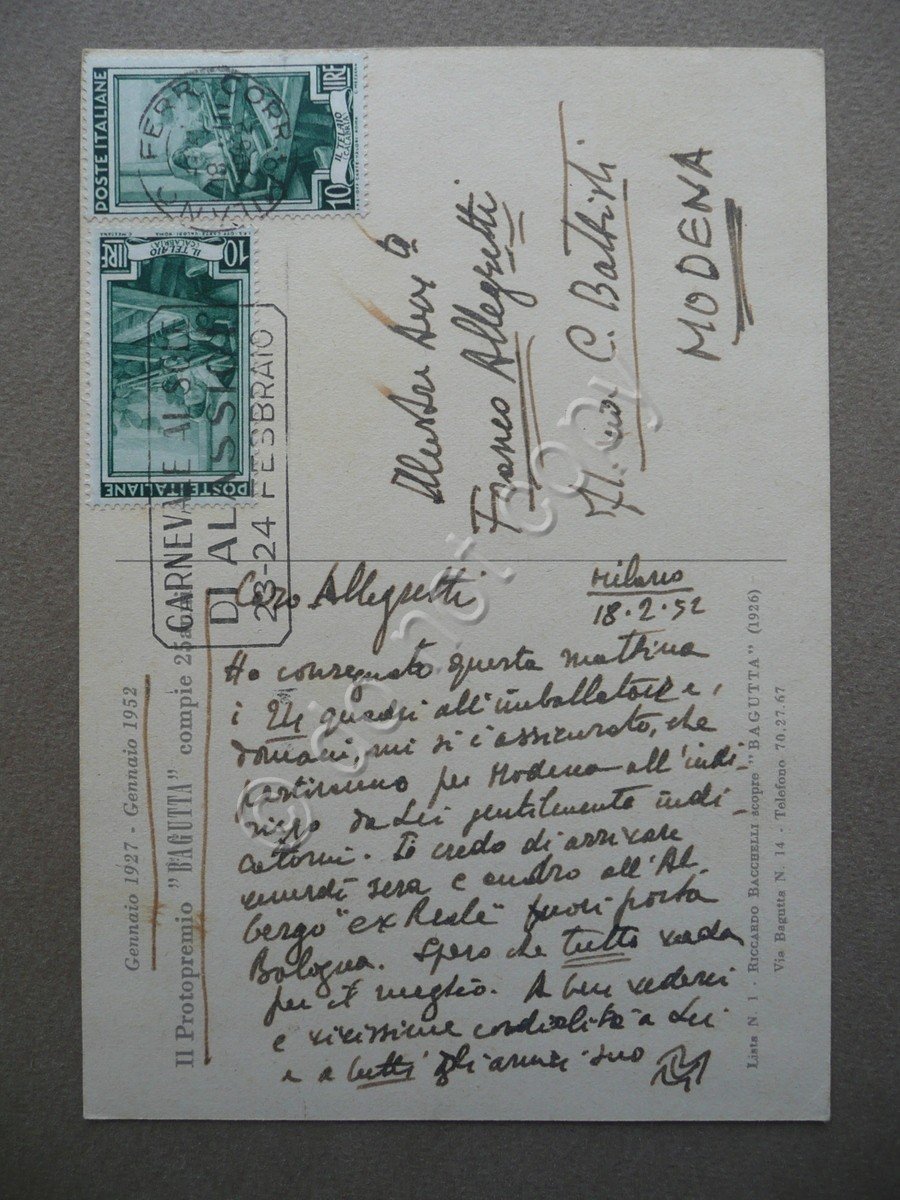 POSTE ITALIANE
10 LIRE
IL TELAIO
CALABRIA
FERR. CORR.
MILANO
10 LIRE
IL TELAIO
(CALABRIA)
POSTE ITALIANE
CARNEVALE AL SOLE
DI ALASSIO
23-24 FEBBRAIO
Franco Allegretti
C. Battisti
MODENA
Gennaio 1927 - Gennaio 1952
Il Protopremio "BAGUTTA" compie 25 anni
Milano
18.2.52
Caro Allegretti
Ho consegnato questa mattina
i 24 quadri all'imballatore e,
domani, mi si è assicurato, che
partiranno per Modena all'indi-
rizzo da Lei gentilmente indi-
catomi. Io credo di arrivare
venerdì sera e andrò all'Al
bergo "ex Reale" fuori porta
Bologna. Spero che tutto vada
per il meglio. A ben vederci
e vivissime cordialità a Lei
e a tutti gli amici suo
Lista N. 1 - RICCARDO BACCHELLI scopre "BAGUTTA" (1926)
Via Bagutta N. 14 - Telefono 70.27.67
© do not copy